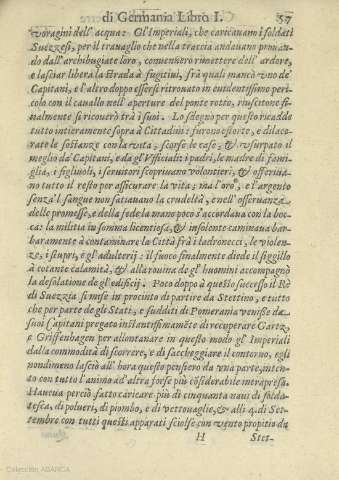 di Germania Libro I. 57
voragini dell'acqua: Gl'Imperiali, che caricavano i soldati
Suezzesi, per il travaglio che nella traccia andavano provan-
do dall'archibugiate loro, convennero rimettere dell'ardore,
e lasciar libera la strada à fugitivi, frà quali mancò uno de'
Capitani, e l'altro doppo essersi ritrovato in evidentissimo peri-
colo con il cavallo nell'aperture del ponte rotto, riuscitone fi-
nalmente si ricoverò trà i suoi. Lo sdegno per questo ricadde
tutto intieramente sopra à Cittadini: furono esposte, e dilace-
rate le sostanze con la vita, scorse le case, & usurpato il
meglio da' Capitani, e da gl'Ufficiali: i padri, le madre di fami-
glia, i figliuoli, i servitori scoprivano volontieri, & offeriva-
no tutto il resto per assicurare la vita; ma l'oro, e l'argento
senza'l sangue non satiavano la crudeltà, e nell'osservanza
delle promesse, e della fede la mano poco s'accordava con la boc-
ca: la militia in somma licentiosa, & insolente caminava bar-
baramente à contaminare la Città frà i ladronecci, le violen-
ze, i stupri, e gl'adulterij: il fuoco finalmente diede il sigillo
à cotante calamità, & alla rouina de gl'huomini accompagnò
la desolatione de gl'edificij. Poco doppo à questo successo il Rè
di Suezzia si mise in procinto di partire da Stettino, e tutto
che per parte de gli Stati, e sudditi di Pomerania venisse da'
suoi Capitani pregato instantissimamēte di recuperar Gartz,
e Griffenhagen per allontanare in questo modo gl'Imperiali
dalla commodità di scorrere, e di saccheggiare il contorno, egli
nondimeno lasciò all'hora questo pensiero da una parte, inten-
to con tutto l'animo ad'altra forse più cōsiderabile intrapresa.
Haveua perciò fatto caricare più di cinquanta naui di solda-
tesca, di polveri, di piombo, e di vettovaglie, & alli 4. di Set-
tembre con tutti questi apparati sciolse con vento propitio da
H Stet-
Colección ABANCA